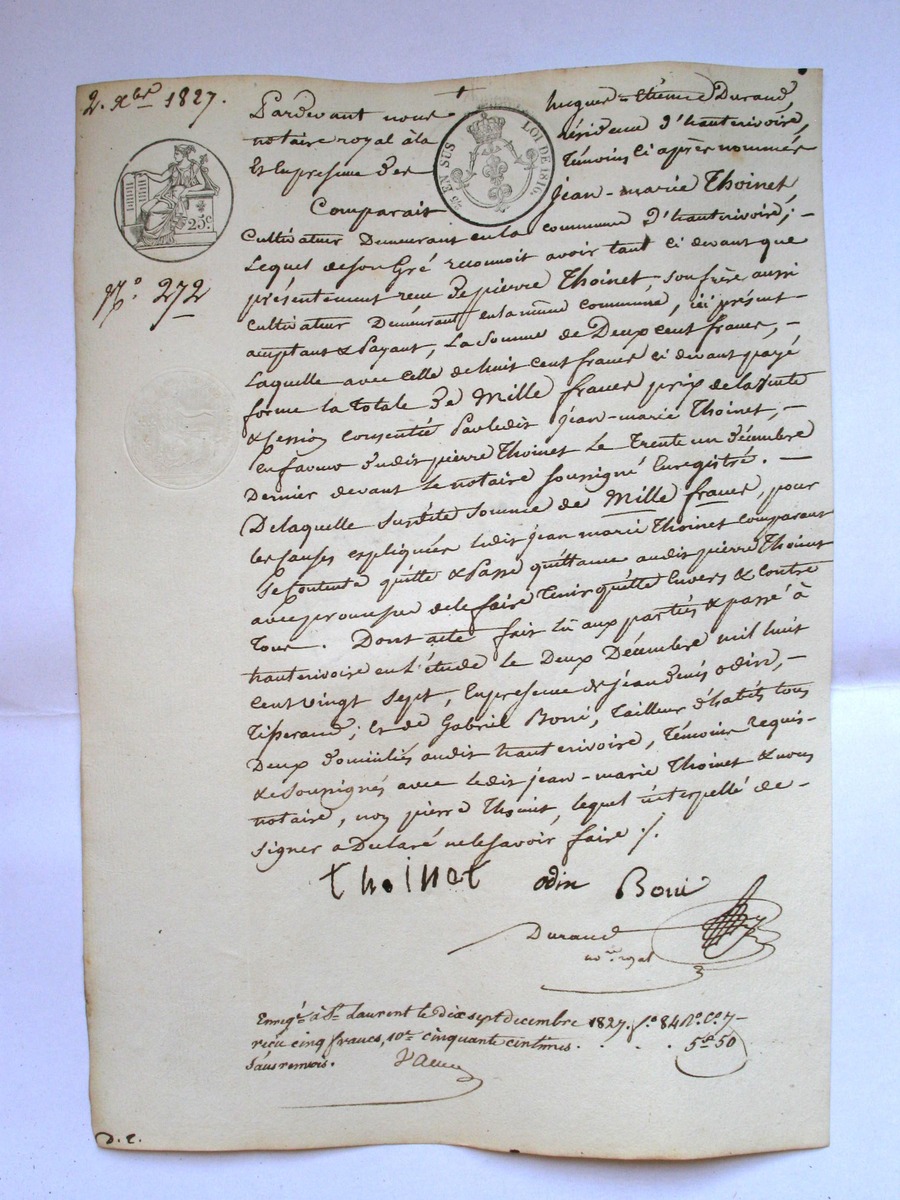 2. Xbre 1827.
25 c.
25 EN SUS
LOI DE 1816.
No. 272
Pardevant nous hugues-etienne Durand,
notaire royal à la résidence d'hauterivoire,
Et En presence des Témoins Ci après nommés
Comparait jean-marie Thoinet
Cultivateur Demeurant en la commune d'hauterivoire; -
Lequel de son Gré reconnoit avoir tant ci devant que
présentement recu de pierre Thoinet, son frère aussi
Cultivateur Demeurant en la même commune, ici présent
acceptant & Payant, La Somme de Deux cent francs, -
Laquelle avec celle de huit cent francs ci devant payé
forme la totale de Mille francs prix de la Vente
& Cession Consentie Par ledit jean-marie Thoinet, -
en faveur dudit pierre Thoinet Le trente un décembre
Dernier devant Le notaire soussigné Enregistré. -
De laquelle susdite Somme de Mille francs, pour
les Causes expliquées ledit jean marie Thoinet comparant
Se Contente quitte & Passe quittance audit pierre Thoinet
avec promesse de le faire Tenir quitte Envers & Contre
Tous. Dont acte fait lû aux partiés & passé à
hauterivoire en l'étude le Deux Décembre mil huit
Cent vingt sept, En presence de jean denis odin, -
Tisserand; Et de Gabriel Borri, Tailleur d'habits tous
Deux domiciliés audit hauterivoire, Témoins Requis
& Soussignés avec ledit jean-marie Thoinet & nous
notaire, non pierre Thoinet, lequel interpellé de -
signer a Déclaré ne le savoir faire ./.
thoinet odin Borri
Durand
nore. royal
Enregé. à St. Laurent le dix sept decembre 1827. fo. 84 Vo. Co. 7 -
recu cinq francs, 10e. cinquante centimes. . . . 5f 50
Sans renvois.
D. E.